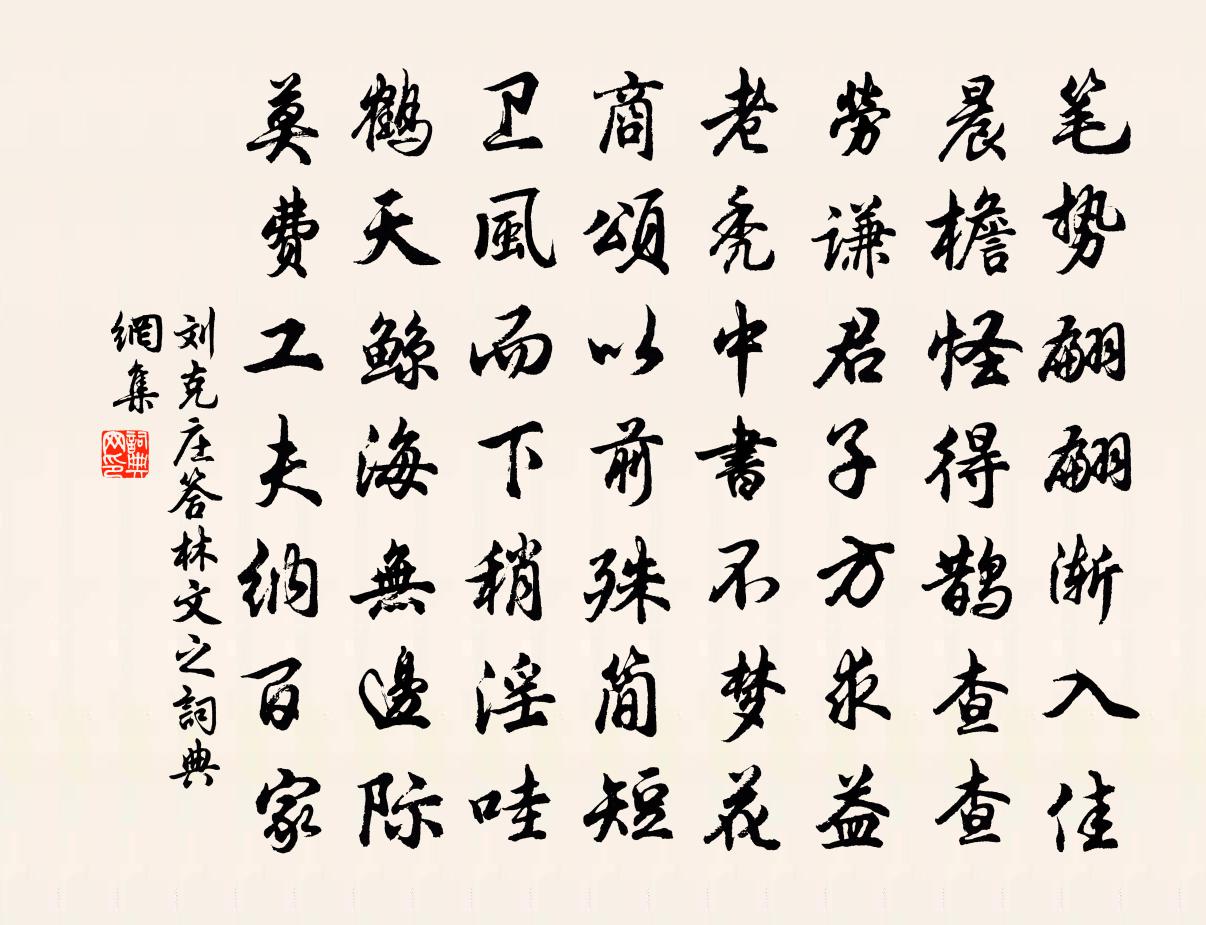 笔势翩翩渐入佳
晨檐怪得鹊查查
勞谦君子方求益
老秃中書不梦花
商頌以前殊简短
卫風而下稍淫哇
鶴天鲸海無邊际
莫费工夫纳百家
刘克庄答林文之詞典
網集
詞典
网印